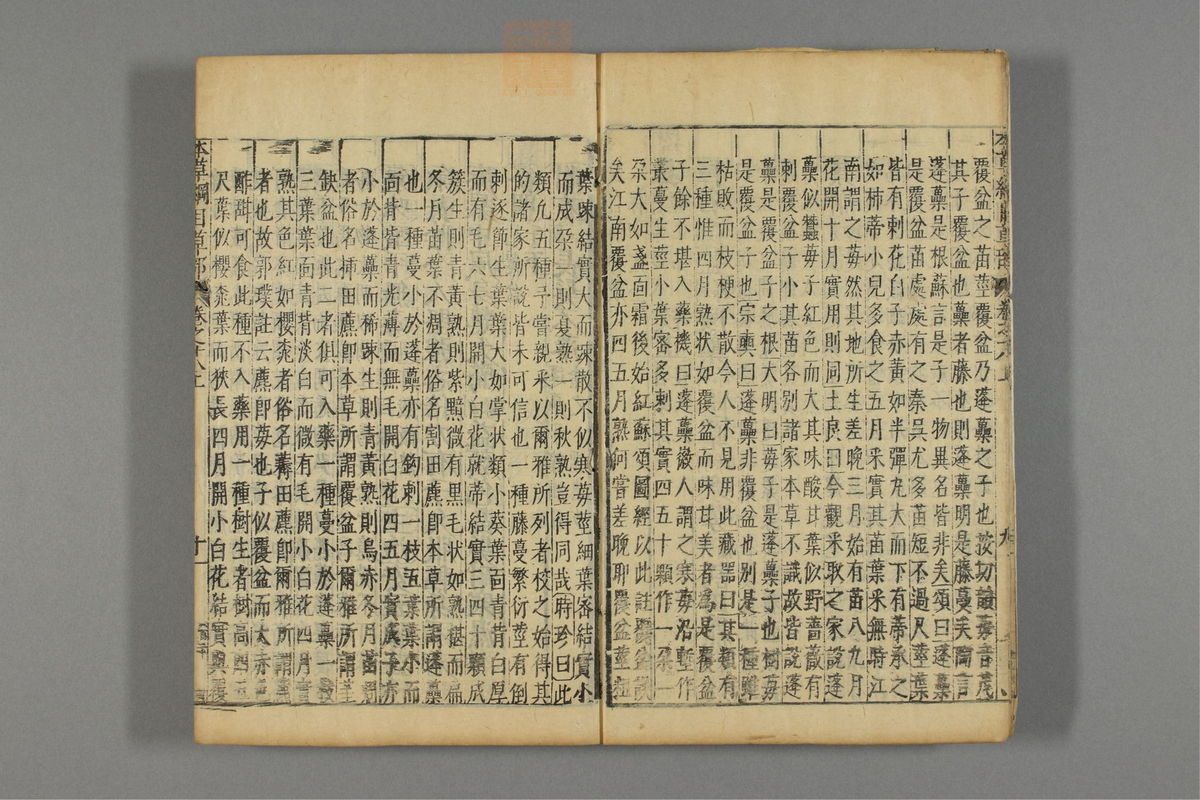 覆盆之苗莖覆盆乃蓬虆之子也按切韻莓音茂
其子覆盆也虆者藤也則蓬虆明是藤蔓矣陶言
蓬虆是根蘇言是子一物異名皆非矣頌曰蓬虆
是覆盆苗處處有之秦吳尤多苗短不過尺莖葉
皆有刺花白子赤黃如半彈丸大而下有蒂承之
如柿蒂小兒多食之五月采實其苗葉采無時江
南謂之莓然其地所生差晚三月始有苗八九月
花開十月實用則同士良曰今觀采取之家說蓬
虆似蠶莓子紅色而大其味酸甘葉似野薔薇有
刺覆盆子小其苗各別諸家本草不識故皆說蓬
虆是覆盆子之根大明曰莓子是蓬虆子也樹莓
是覆盆子也宗奭曰蓬虆非覆盆也別是一種雖
枯敗而枝梗不散今人不見用此藏器曰其類有
三種惟四月熟狀如覆盆而味甘美者為是覆盆
子餘不堪入藥機曰蓬虆徽人謂之寒莓沿塹作
叢蔓生莖小葉密多刺其實四五十顆作一朶一
朶大如盞面霜後始紅蘇頌圖經以此註覆盆誤
矣江南覆盆亦四五月熟何嘗差晚耶覆盆莖粗
葉踈結實大而踈散不似寒莓莖細葉密結實小
而成朶一則夏熟一則秋熟豈得同哉時珍曰此
類凡五種予嘗親采以爾雅所列者校之始得其
的諸家所說皆未可信也一種藤蔓繁衍莖有倒
刺逐節生葉葉大如掌狀類小葵葉面青背白厚
而有毛六七月開小白花就蒂結實三四十顆成
簇生則青黃熟則紫黯微有黑毛狀如熟椹而扁
冬月苗葉不凋者俗名割田藨即本草所謂蓬虆
也一種蔓小於蓬虆亦有鈎刺一枝五葉葉小而
面背皆青光薄而無毛開白花四五月實成子亦
小於蓬虆而稀踈生則青黃熟則烏赤冬月苗凋
者俗名插田藨即本草所謂覆盆子爾雅所謂茥
缺盆也此二者俱可入藥一種蔓小於蓬虆一枝
三葉葉面青背淡白而微有毛開小白花四月實
熟其色紅如櫻桃者俗名薅田藨即爾雅所謂藨
者也故郭璞註云藨即莓也子似覆盆而大赤
酢甜可食此種不入藥用一種樹生者樹高四五
尺葉似櫻桃葉而狹長四月開小白花結實與覆
本草綱目草部 卷之十八上 十一